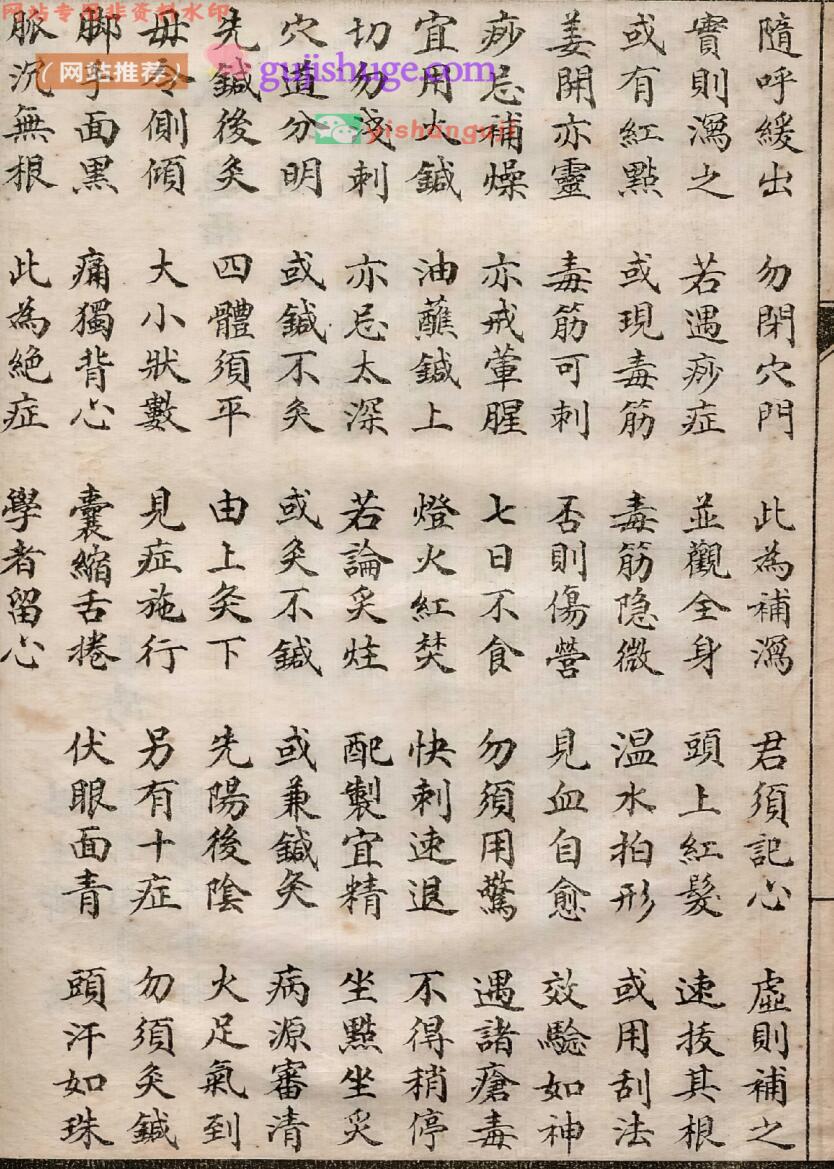 隨呼緩出 勿閉穴門 此為補瀉 君須記心 虛則補之
實則瀉之 若遇痧症 並觀全身 頭上紅髮 速拔其根
或有紅點 或現毒筋 毒筋隐微 温水拍形 或用刮法
姜開亦靈 毒筋可刺 否則傷營 見血自愈 效驗如神
痧忌補燥 亦戒葷腥 七日不食 勿須用驚 遇諸瘡毒
宜用火鍼 油蘸鍼上 燈火紅焚 快刺速退 不得稍停
切勿淺刺 亦忌太深 若論炙炷 配製宜精 坐點坐炙
穴道分明 或鍼不灸 或灸不鍼 或兼鍼灸 病源審清
先鍼後灸 四體須平 由上灸下 先陽後陰 火足氣到
毋令側傾 大小狀數 見症施行 另有十症 勿須灸鍼
面黑 痛獨背心 囊縮舌捲 伏眼面青 頭汗如珠
脈沉無根 此為絕症 學者留心
网站专用非资料水印
（网站推荐）
gujishuge.com
yishanguji